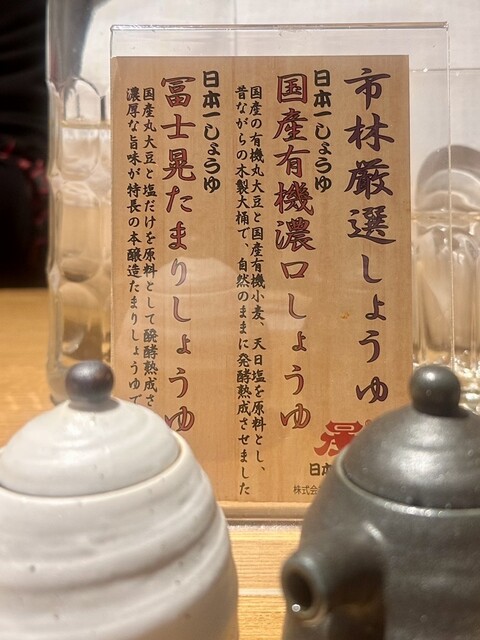 市林厳選しょうゆ
日本一しょうゆ
国産有機濃口しょうゆ
国産の有機丸大豆と国産有機小麦、天日塩を原料とし、
昔ながらの木製大桶で、自然のままに発酵熟成させました
日本一しょうゆ
冨士晃たまりしょうゆ
国産丸大豆と塩だけを原料として醗酵熟成さ
濃厚な旨味が特長の本醸造たまりしょうゆで
日本
株式会